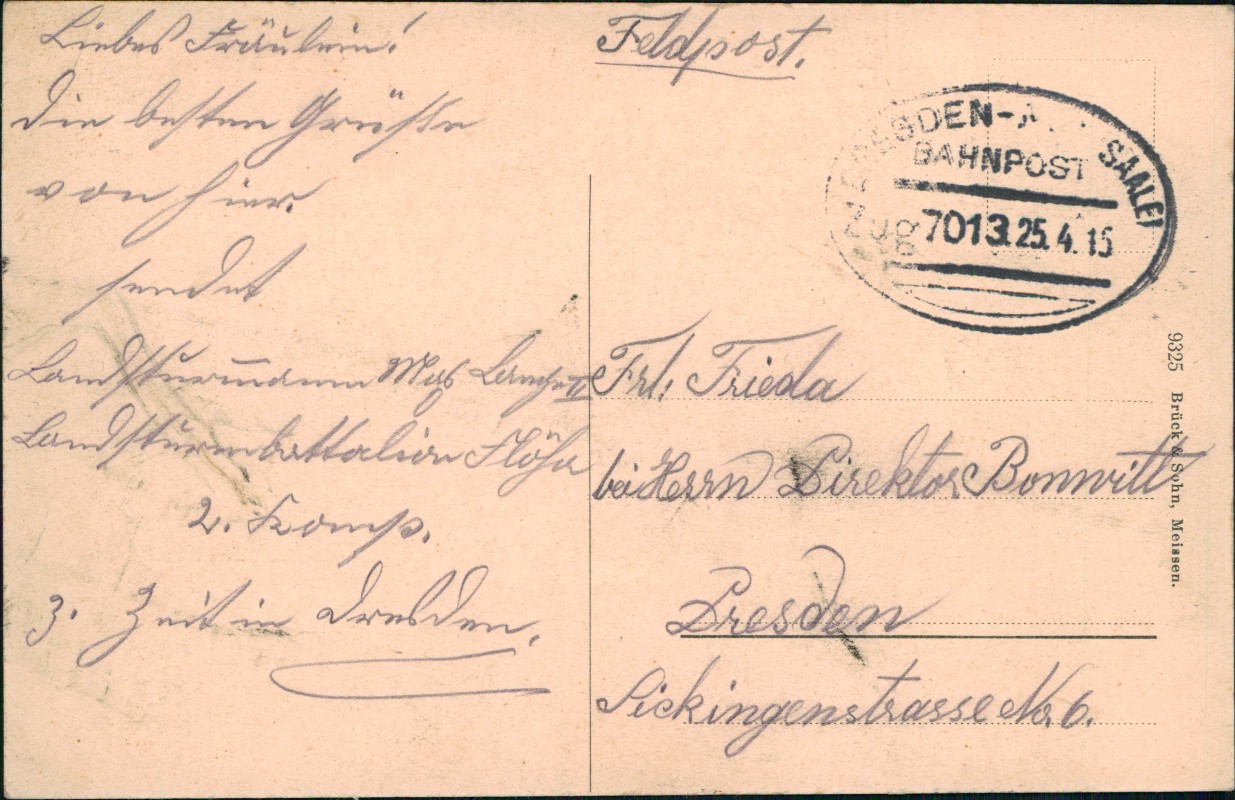 Liebes Fräulein!
die besten Grüsse
von hier.
sendet
Landsturmann Max Lange II
Landsturmbattalion Flöha
2. Komp.
z. Zeit in Dresden.
Feldpost.
DRESDEN- SAALE)
BAHNPOST
Zug 7013. 25. 4. 15
Frl: Frieda
bei Herrn Direktor Bonwitt
Dresden
Sickingenstrasse No. 6.
9325 Brück & Sohn, Meissen.